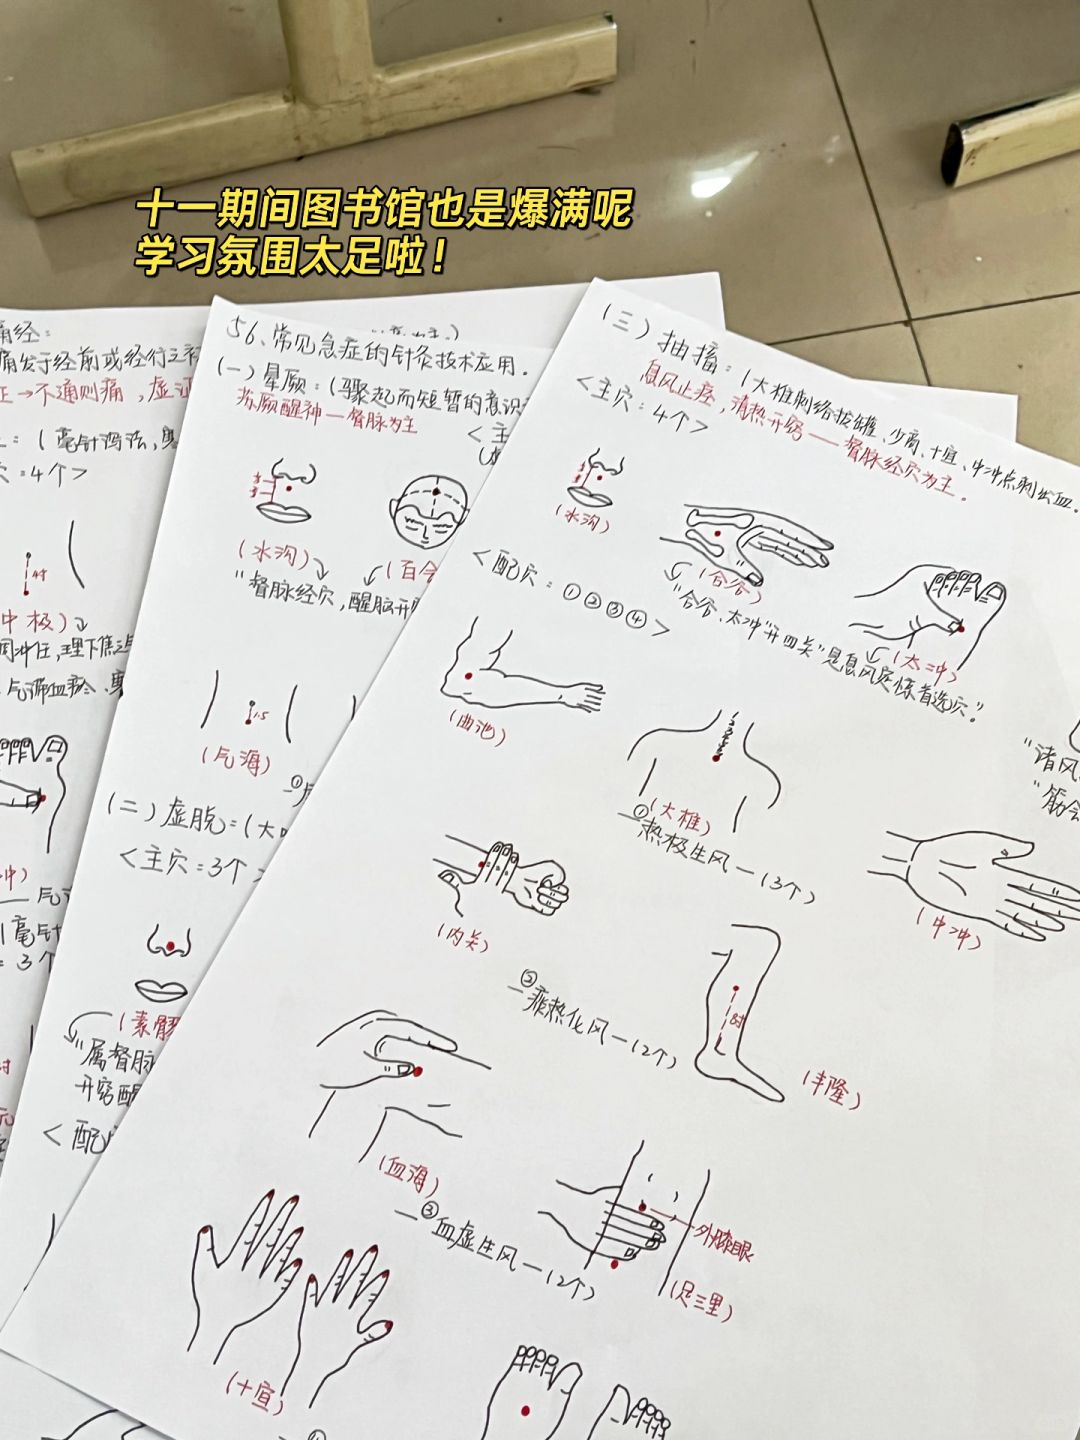 十一期间图书馆也是爆满呢
学习氛围太足啦！
痛经：
痛发于经前或经行之初
→不通则痛，虚证
：（毫针泻法，
穴：4个>
4寸
中极）
调冲任，理下焦
气滞血瘀、寒
冲）
气
（毫针
：3个
56、常见急症的针灸技术应用.
(一) 晕厥：（骤起而短暂的意识
苏厥醒神—督脉为主
<主
（水沟）
（百会
“督脉经穴，醒脑开
1.5
（气海）
①
(二) 虚脱：（大
<主穴：3个
（素髎
“属督脉
开窍醒
<配
(三) 抽搐：（大椎刺络拔罐、少商、十宣、中冲点刺出血.
息风止痉，清热开窍——督脉经穴为主.
<主穴：4个>
（水沟）
（合谷）
“合谷、太冲“开四关”是息风定惊首选穴.”
（太冲）
“诸风
“筋会
<配穴：①②③④>
（曲池）
（大椎）
—①热极生风—（3个）
（中冲）
（内关）
—②痰热化风—（2个）
8寸
（丰隆）
（血海）
—③血虚生风—（2个）
外膝眼
（足三里）
（十宣）
④